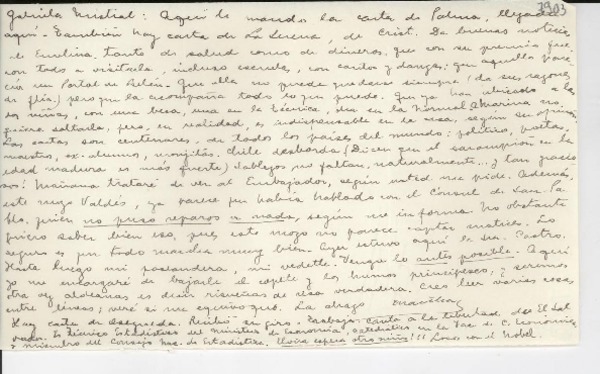 1903
Gabriela Mistral: Aquí le mando la carta de Palma, llegada
aquí - También hay carta de La Serena, de Crist. Da buenas noticias
de Emelina, tanto de salud como de dineros, que con su premio fue
con todo a visitarla, incluso escuela, con cantos y danzas; que aquello parecía
un Portal de Belén. Que ella no puede quedarse siempre (da sus razones
de ) pero que la acompaña todo lo que puede. Que ya han ubicado a las
dos niñas, con una beca, una en la Técnica, otra en la Normal. Marina no
quiere soltarla, pero, en realidad, es indispensable en la casa, según su opinión.
Las cartas son centenares, de todos los países del mundo: políticos, poetas,
maestros, ex-alumnos, monjitas. Chile desborda (Dicen que el sarampión en la
edad madura es más fuerte) Sablazos no faltan, naturalmente... y tan graciosos!
Mañana trataré de ver al Embajador, según usted me pide. Además,
este muy Valdés, ya parece por haber hablado con el Cónsul de San Pablo,
quien no puso reparos a nada, según me informa. No obstante
quiero saber bien eso, pues este mozo no parece captar matices. Lo
seguro es que todo marcha muy bien. Ayer estuvo aquí la Sra. Castro.
Hasta luego mi posadera, mi vedette. Venga lo antes posible. Aquí
yo me encargaré de bajarle el copete y los humos principescos, y seremos
otra vez aldeanas es decir risueñas de risa verdadera. Creo leer varias cosas
entre líneas; veré si me equivoqué. La abrazo
Hay carta de Esqueda. Recibió su giro. Trabaja canta a la libertad, de El Salvador.
Es técnico Estadístico del Ministerio de Economía, catedrático en la Fac. de C. Económicas
y miembro del Consejo Nac. de Estadística. Elvira espera otro niño!!! Loco con el Nobel.